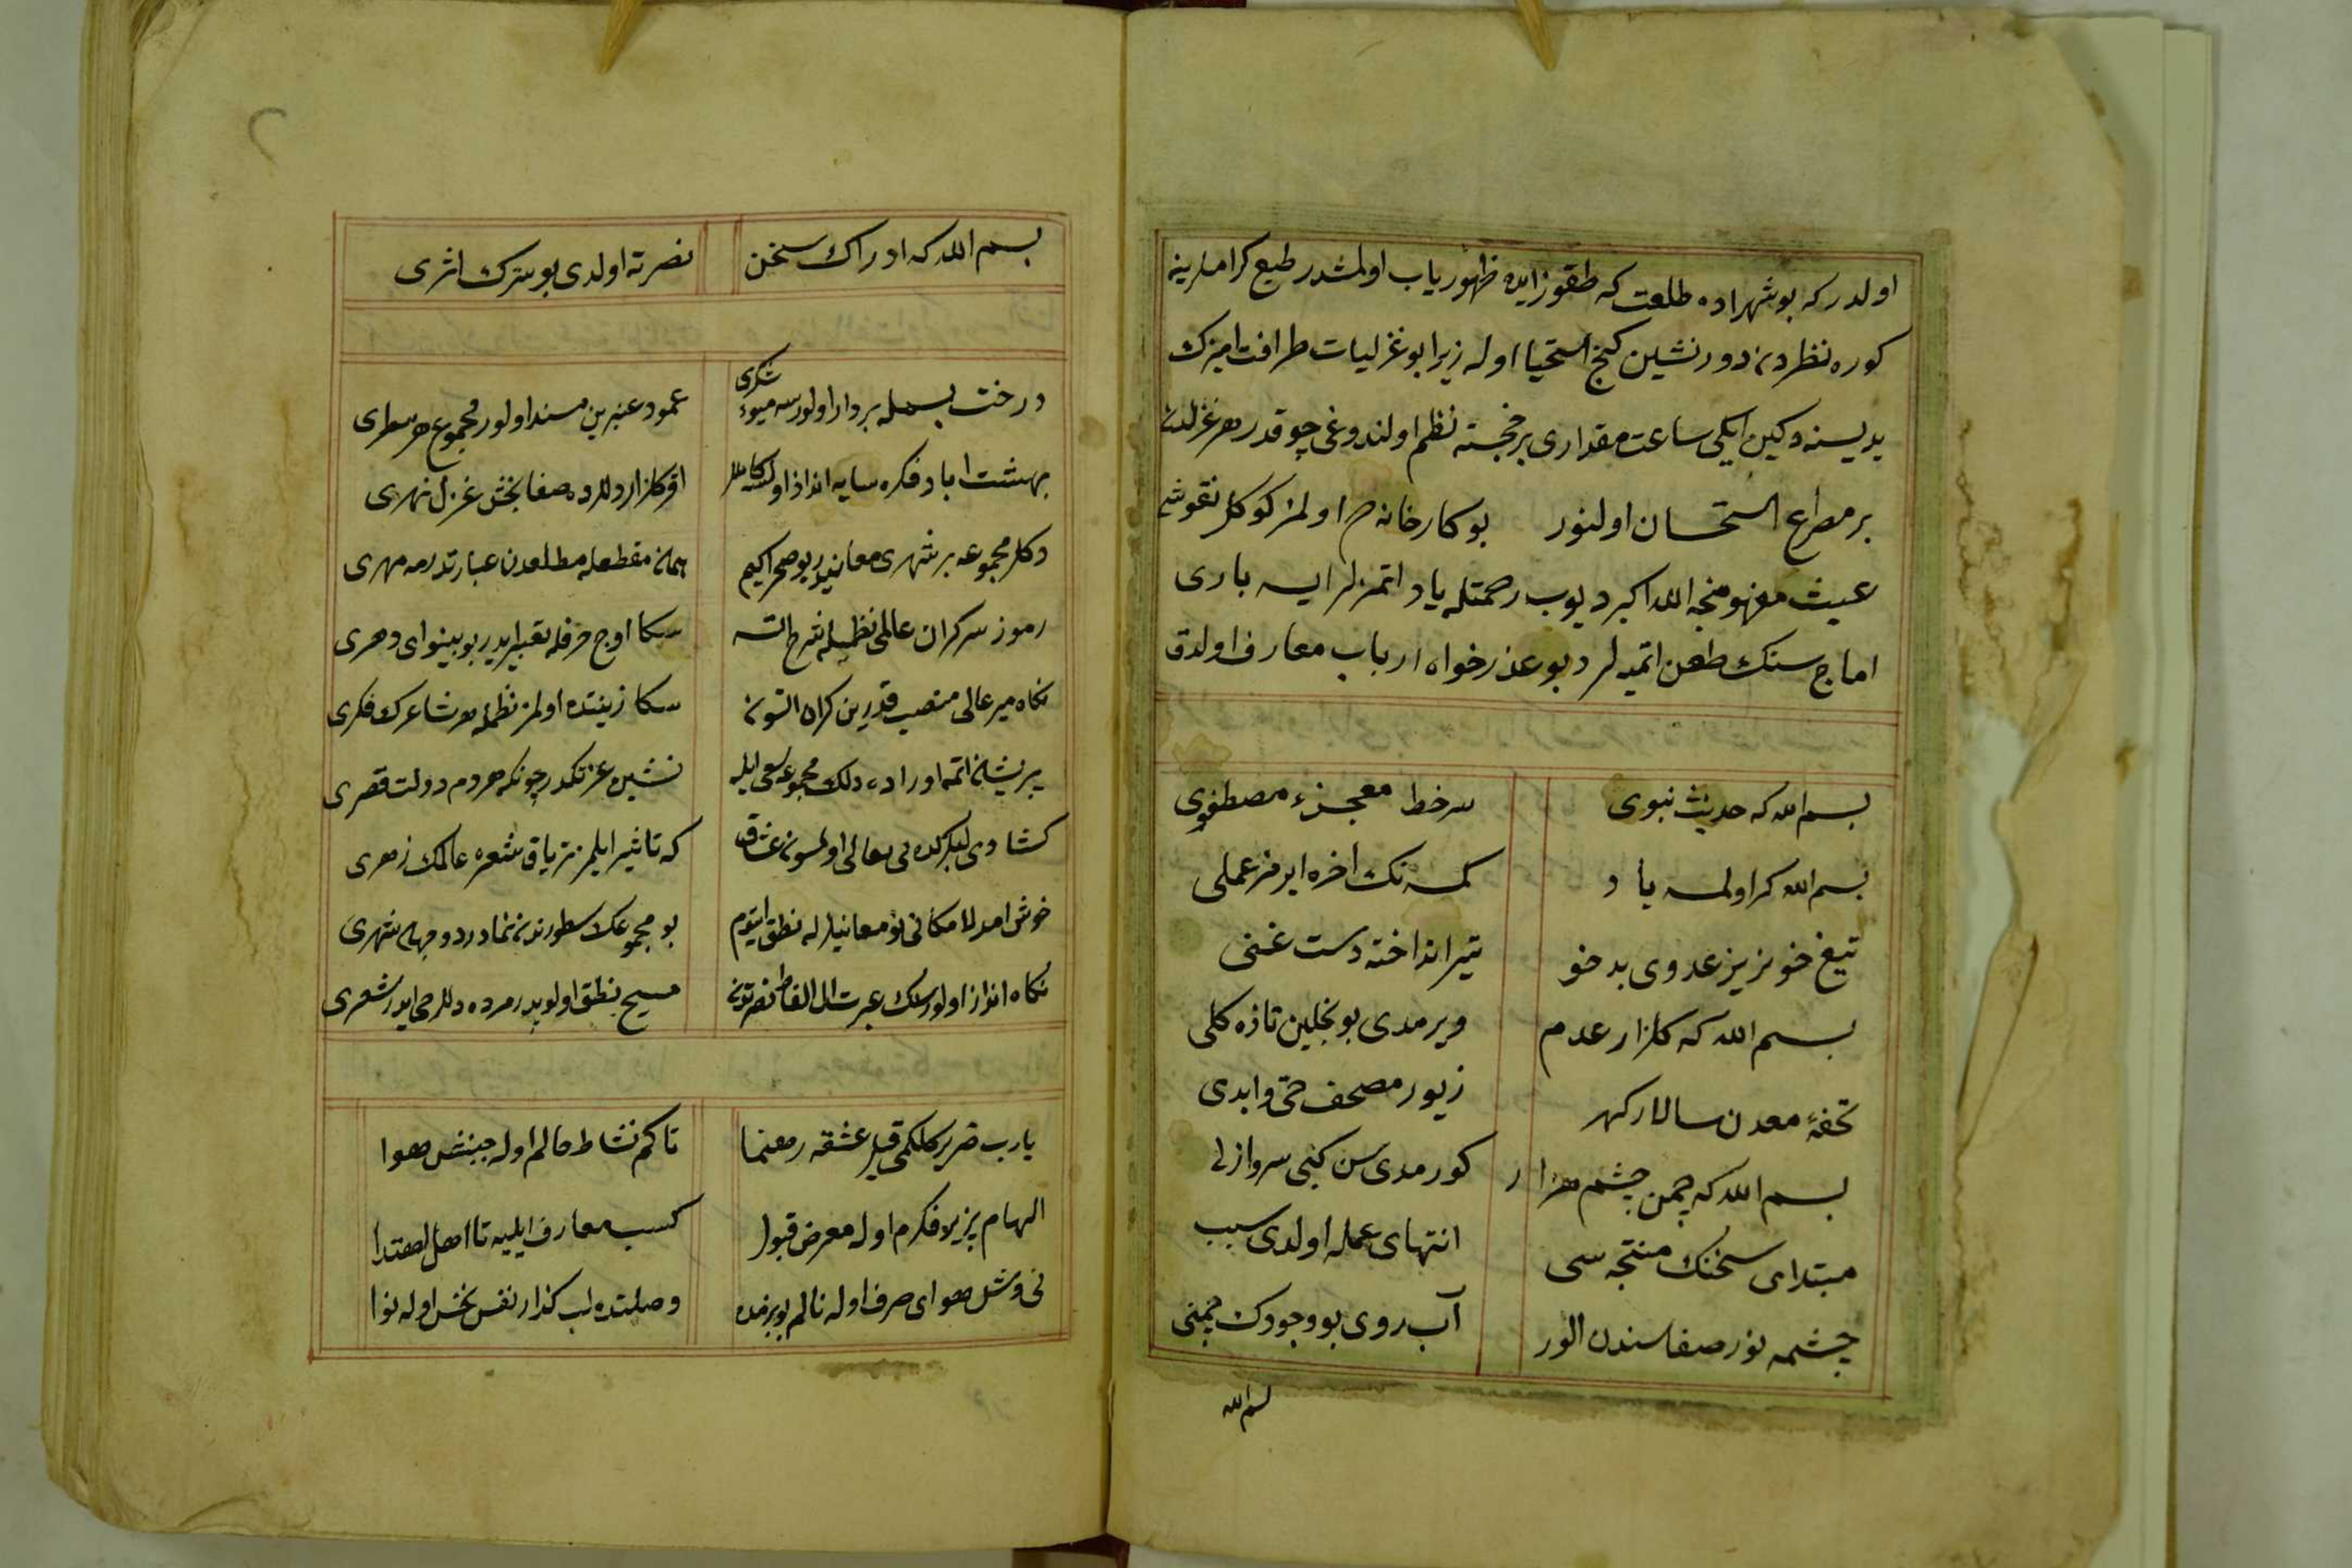 اولدر كه بو شهزاده طلعت كه طقوز ايده ظهورياب اولمشدر طبع كراملرينه
كوره نظردن دور نشين كنج استحيا اوله زيرا بو غزليات طرافت اميزك
يديسنه دكين ايكی ساعت مقداری بر خجسته نظم اولندوغی چو قدر هر غزلدن
بر مصراع استحسان اولنور بو كارخانه اولمز كوكلر نقوشی
عبث مفهومنجه الله اكبر ديوب رحمتله ياد اتمزلر ايسه باری
اماج سنك طعن اتميه لر ديو عذرخواه ارباب معارف اولدق
بسم الله كه حديث نبوی
سرخط معجزء مصطفوی
بسم الله كر اولمسه ياد
كمسه نك اخره ايرمز عملی
تيغ خونريز عدوی بدخو
تير انداخته دست غنی
بسم الله كه كلزار عدم
ويرمدی بو نجلين تازه كلی
تحفهٔ معدن سالار كهر
زيور مصحف حی و ابدی
بسم الله كه چمن چشم هزار
كورمدی سن كبی سرو ازلی
مبتدای سخنك منتجه سی
انتهای عمله اولدی سبب
چشمه نور صفاسندن الور
آب روی بو وجودك چمنی
بسم الله
بسم الله كه ادراك سخن
نصرته اولدی بو سترك اثری
درخت بسمله بردار اولورسه ميوهٔ شكری
عمود عنبرين مسند اولور مجموع هر سطری
بهشت اباد فكره سايه انداز اولسه كاكللر
اقر كلزار دللرده صفا بخش غزل نهری
دكلر مجموعه بر شهری معانيدر بو صحرا كيم
همان مقطعله مطلعدن عبارتدر مه مهری
رموز سركران عالمی نظميله شرح اتسه
سكا اوج حرفله تعبير ايدر بو بينوای دهری
نكاه مير عالی منصب قدرين كران اتسون
سكا زينتده اولمز نظمله هر شاعرك فكری
پريشان اتمه اوراد دلك مجموعه سعی ايله
نشين عزتكدر چونكه هردم دولت قصری
كشادی لبلر كده نی معالی اولمسون عشاق
كه تاثير ايلمز ترياق شعره عالمك زهری
خوش امد لامكانی نو معانيلر له نطق ايتدم
بو مجموعك سطورندن نمادر دو جهان شهری
نكاه انداز اولورسك عبرت ال الفاظ نصرتدن
مسيح نطق اولوبدر مرده دللر حی ايدر شعری
يارب ضرير كلكمی قيل عشقه رهنما
تا كم نشاط حالم اوله جنبش هوا
الهام پزيرلا فكرم اوله معرض قبول
كسب معارف ايليه تا اهل اهتدا
نی وش هوای صرف اوله نالم بو بزمده
وصلتده لب كذار نفس بخش اوله نوا